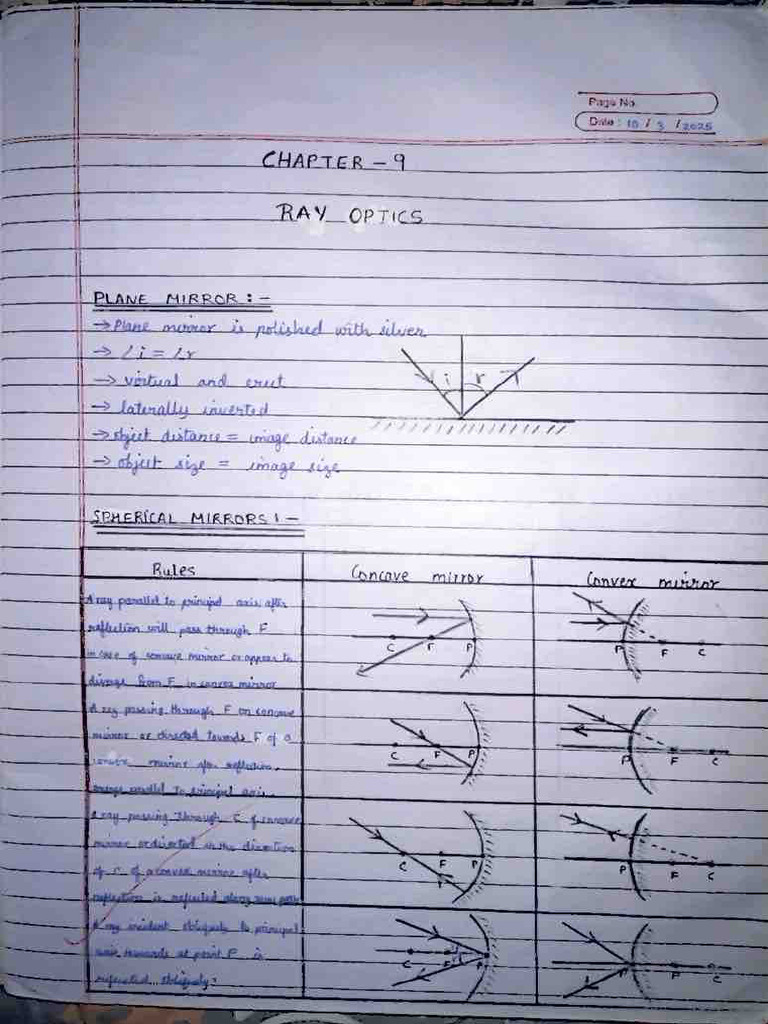 Page No.
Date : 10 / 3 / 2025
CHAPTER - 9
RAY OPTICS
PLANE MIRROR : -
→ Plane mirror is polished with silver
→ ∠i = ∠r
→ virtual and erect
→ laterally inverted
→ object distance = image distance
→ object size = image size
i r
SPHERICAL MIRRORS : -
Rules Concave mirror Convex mirror
A ray parallel to principal axis after
reflection will pass through F
in case of concave mirror or appear to
diverge from F in convex mirror
C F P
P F C
A ray passing through F on concave
mirror or directed towards F of a
convex mirror after reflection,
emerge parallel to principal axis.
C F P
P F C
A ray passing through C of concave
mirror or directed in the direction
of C of a convex mirror after
reflection is reflected along same path
C F P
P F C
A ray incident obliquely to principal
axis towards at point P is
reflected obliquely.
C F P
P F C